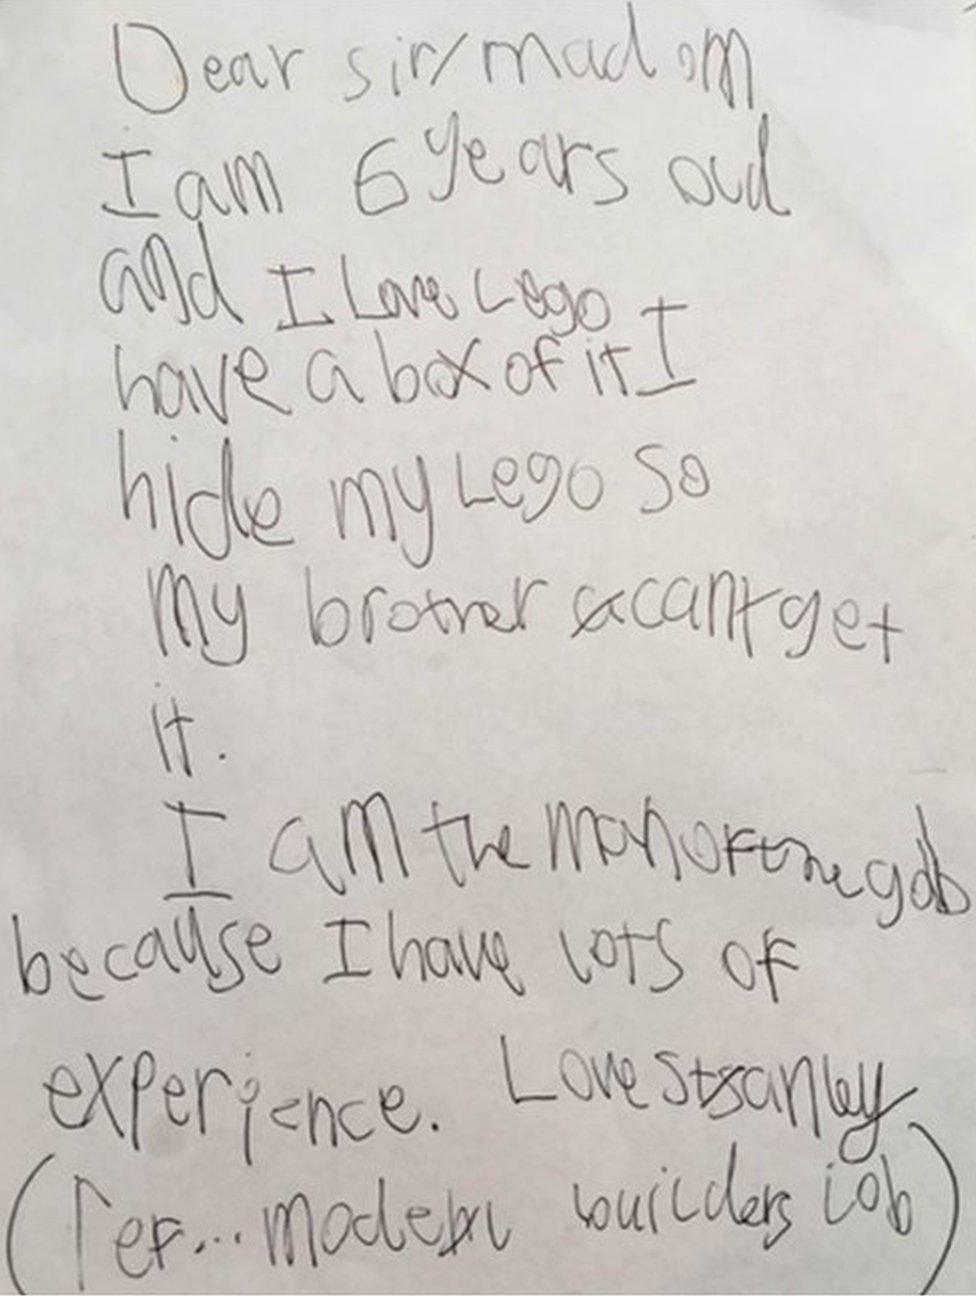 Dear sir/madam
I am 6 years oud
and I Love Lego I
have a box of it I
hide my Lego so
my brother cant get
it.
I am the man of the gob
because I have lots of
experience. Love Stanley
(ref... model builders job)